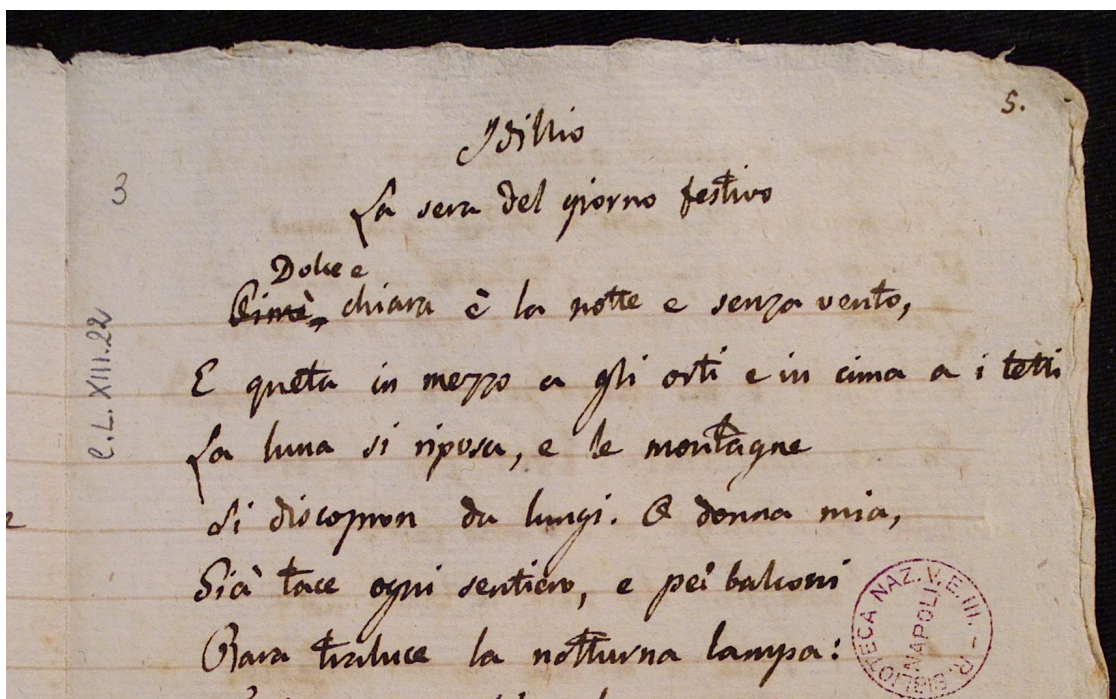 5.
Idillio
3
La sera del giorno festivo
Dolce e
Oimè, chiara è la notte e senza vento,
C.L. XIII.22
E queta in mezzo a gli orti e in cima a i tetti
La luna si riposa, e le montagne
Si discopron da lungi. O donna mia,
Già tace ogni sentiero, e pei balconi
Rara traluce la notturna lampa:
R. BIBLIOTECA NAZ. V. E. III. -
NAPOLI